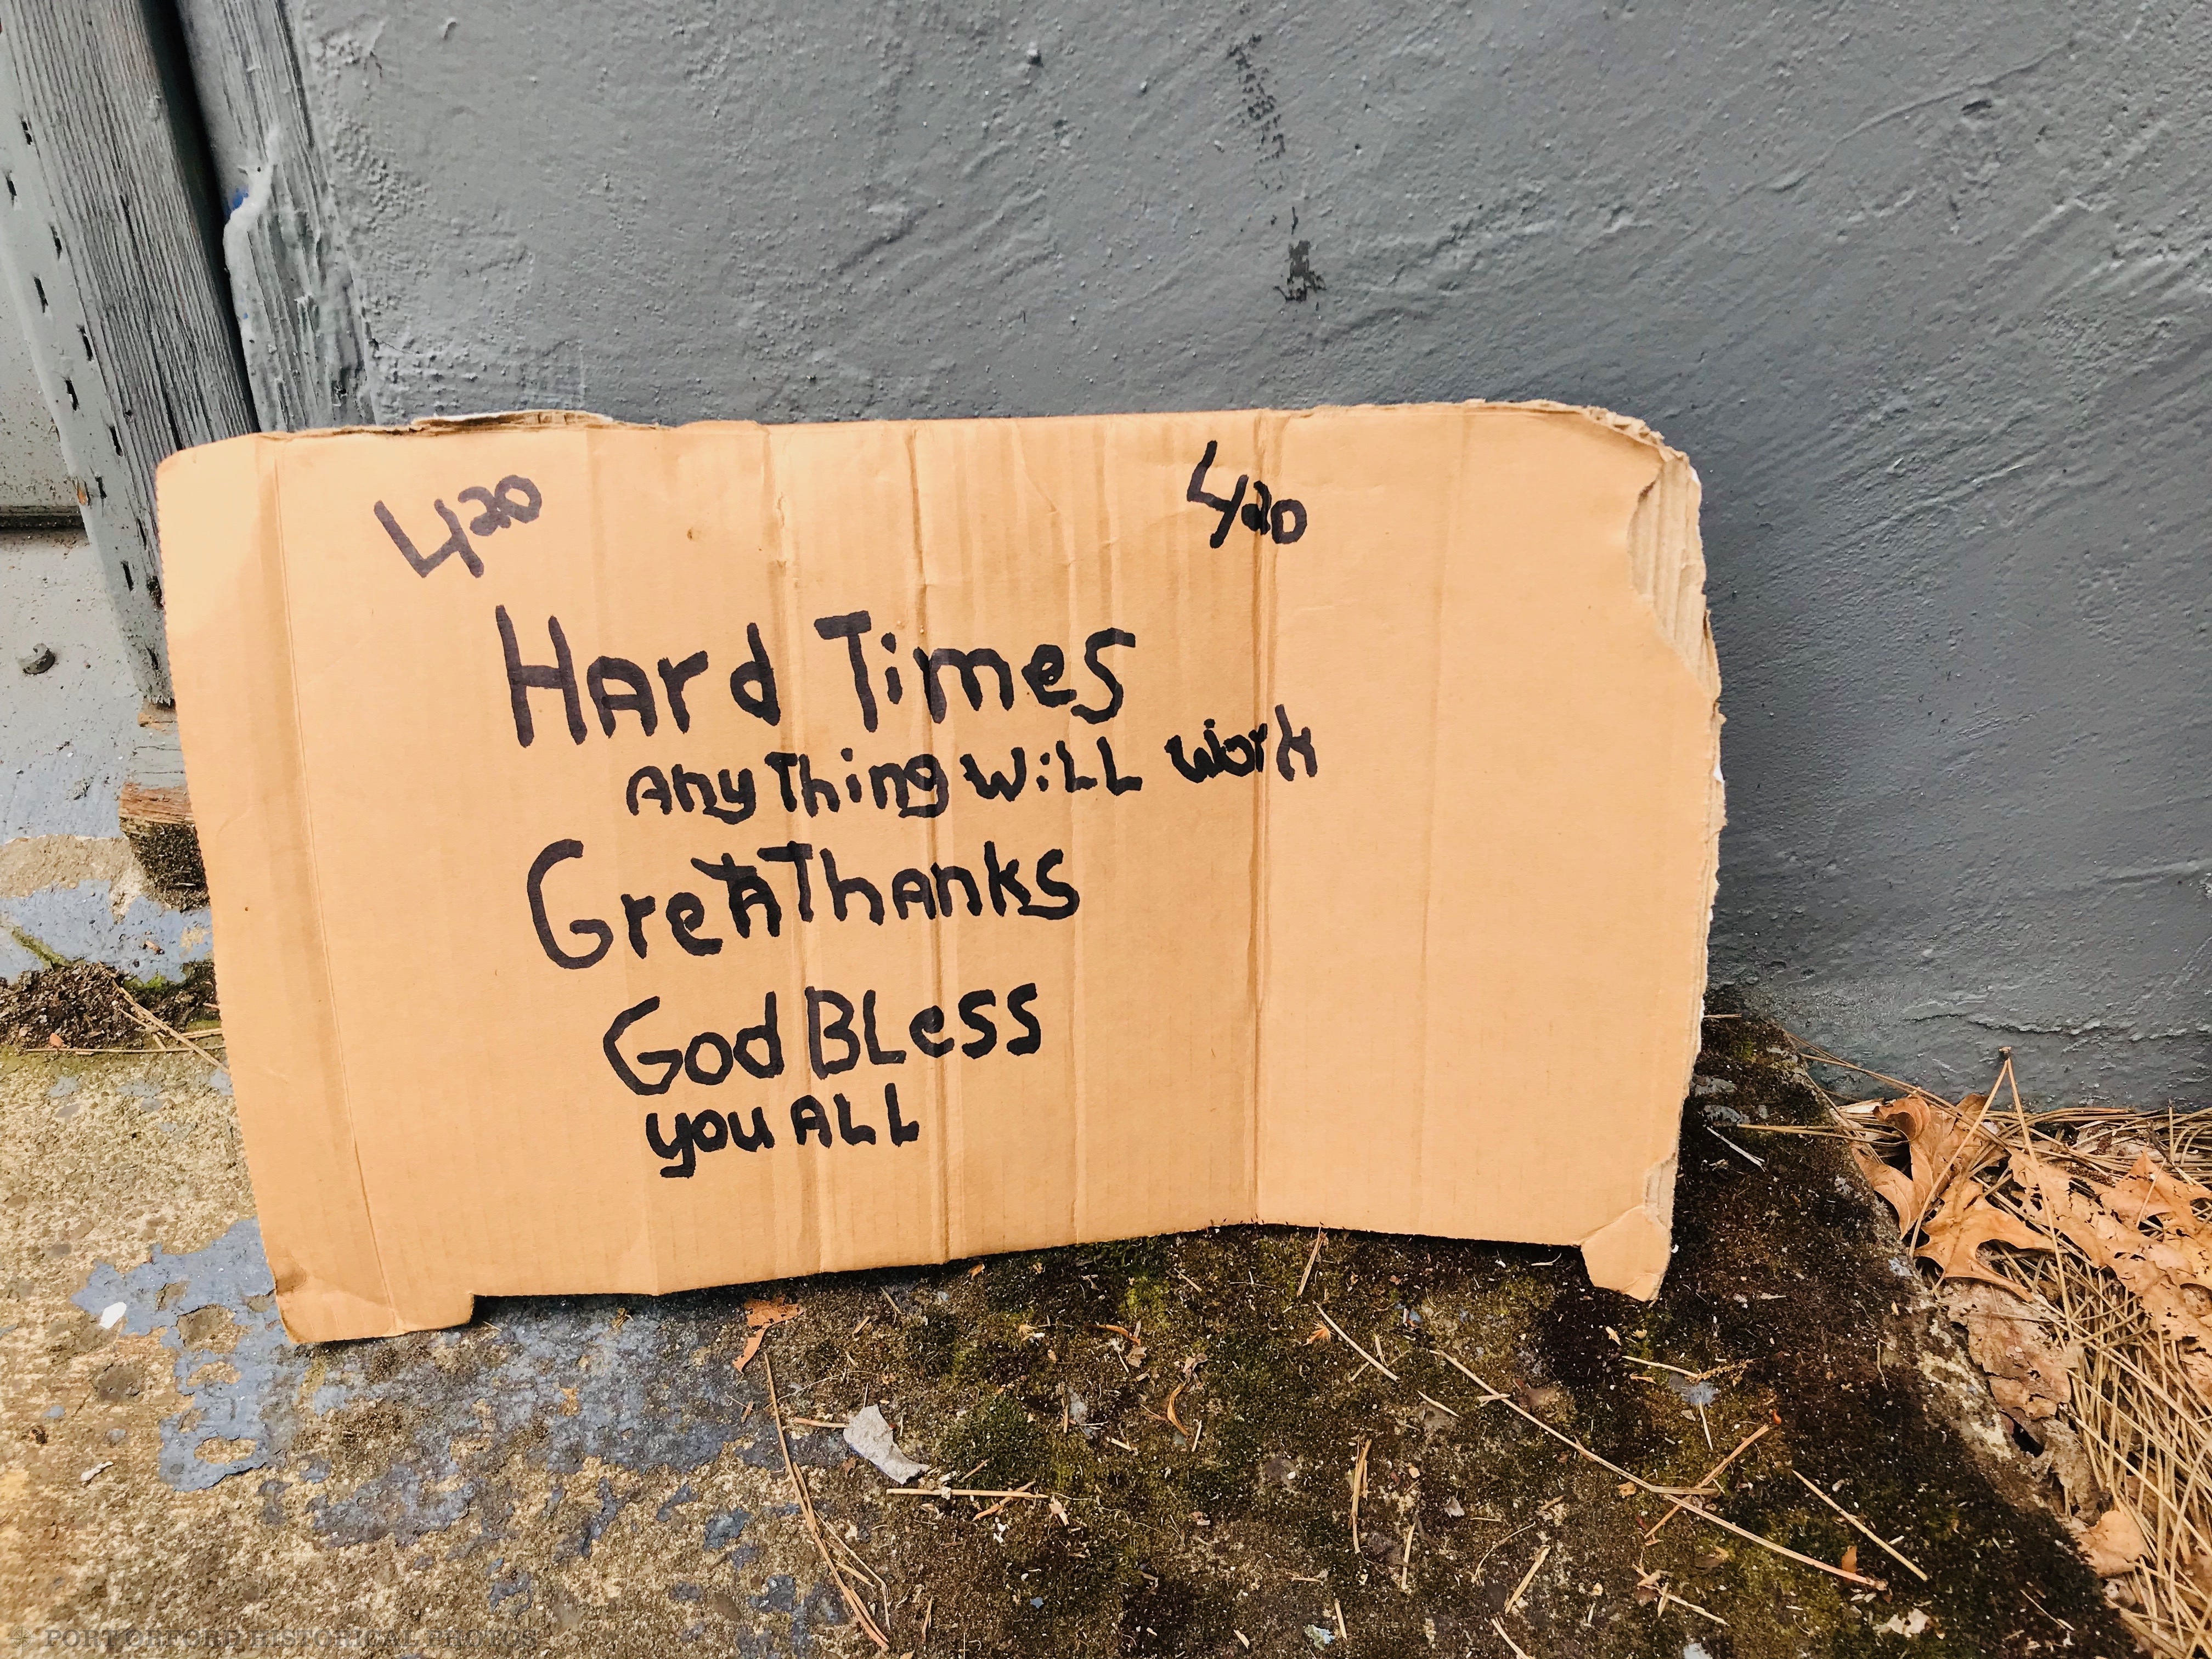 420 420
HArd Times
AnyThing WiLL work
GreAT ThAnks
God BLess
you ALL
PORT ORFORD HISTORICAL PHOTOS